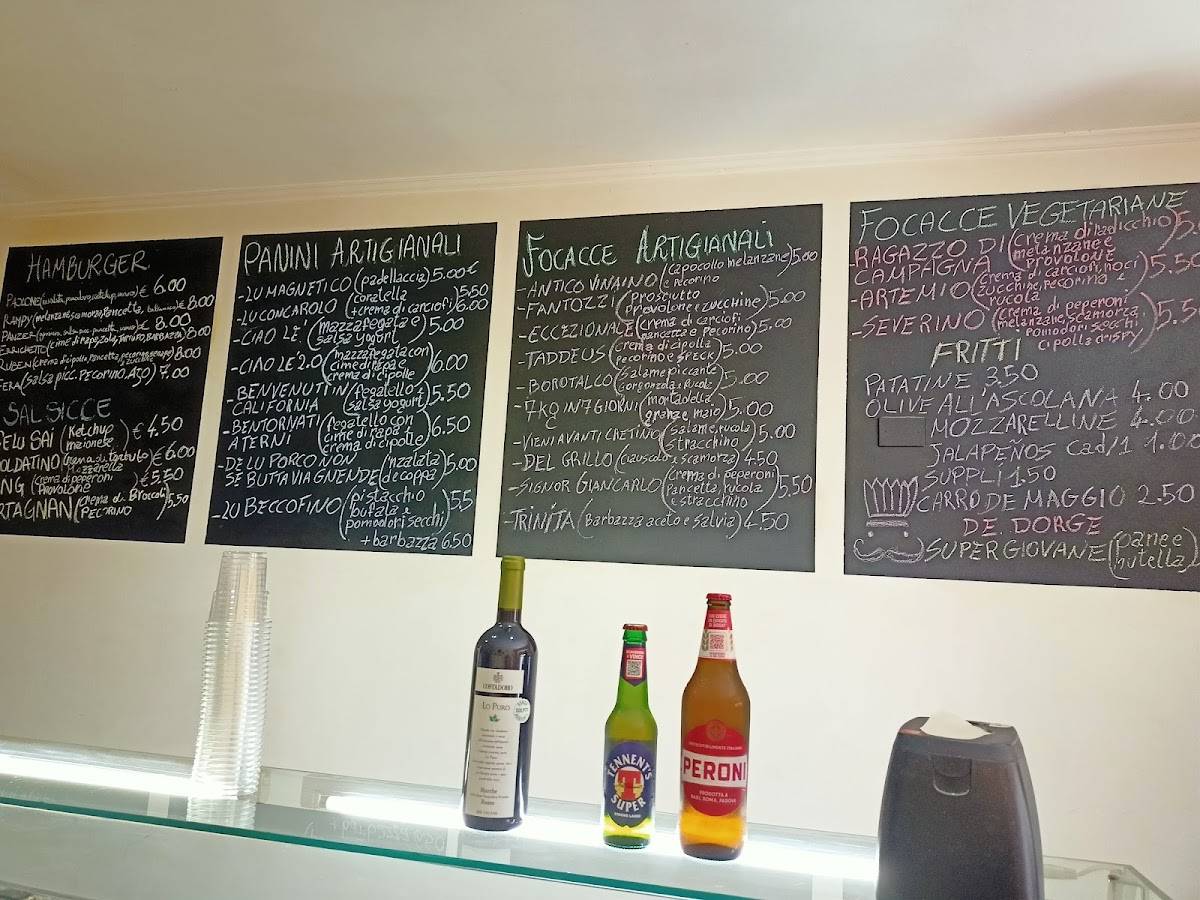 HAMBURGER
€ 6.00
8.00
€ 8.00
8.00
8.00
(salsa picc. Pecorino, 7.00
SALSICCE
(Ketchup
maionese € 4.50
OLDATINO (crema di tartufo
mozzarella € 6.00
(crema di peperoni
Provolone € 5.50
RTAGNAN (crema di Broccoli
PECORINO 5,50
PANINI ARTIGIANALI
- LU MAGNETICO (padellaccia) 5.00 €
- LU CONCAROLO (coralella 5,50
+ crema di carciofi) 6.00
- CIAO LÈ (mazzafegata e
salsa yogurt 5.00
- CIAO LÈ 2.0 (mazzafegata con
cime di rapa e
crema di cipolle) 6.00
- BENVENUTI IN
CALIFORNIA (fegatello
salsa yogurt) 5.50
- BENTORNATI
ATERNI (fegatello con
cime di rapa e
crema di cipolle) 6.50
- DE LU PORCO NON
SE BUTTA VIA GNENDE (nzalata
de coppa) 5,00
- LU BECCOFINO (pistacchio
bufala e
pomodori secchi) 5,5
+ barbazza 6.50
FOCACCE ARTIGIANALI
- ANTICO VINAINO (capocollo melanzane
e pecorino) 5,00
- FANTOZZI (prosciutto
provolone e zucchine) 5.00
- ECCEZIONALE (crema di carciofi
pancetta e pecorino) 5.00
- TADDEUS (crema di cipolla
pecorino e SPECK) 5.00
- BOROTALCO (salame piccante
gorgonzola e rucola 5.00
- 7KG IN 7 GIORNI (mortadella
grana e, maio) 5.00
- VIENI AVANTI CRETINO (salame, rucola
stracchino) 5.00
- DEL GRILLO (ciauscolo e scamorza) 4.50
- SIGNOR GIANCARLO (crema di peperoni
pancetta, rucola
e stracchino) 5,50
- TRINITÀ (Barbazza aceto e salvia) 4.50
FOCACCE VEGETARIANE
- RAGAZZO DI
CAMPAGNA (crema di radicchio
melanzane e
provolone
- ARTEMIO (crema di carciofi, noci
zucchine, pecorino
rucola 5.50
- SEVERINO (crema di peperoni
melanzane, scamorza,
pomodori secchi
cipolla crispy 5.50
FRITTI
PATATINE 3.50
OLIVE ALL'ASCOLANA 4.00
MOZZARELLINE 4.00
JALAPEÑOS cad/1 1.00
SUPPLÌ 1.50
CARRO DE MAGGIO 2.50
DE. DORGE
SUPER GIOVANE (pane e
nutella)
COSTADORO
LO PURO
Marche
Rosso
TENNENT'S
T
SUPER
STRONG LAGER
PERONI
PRODOTTA A
BARI, ROMA, PADOVA